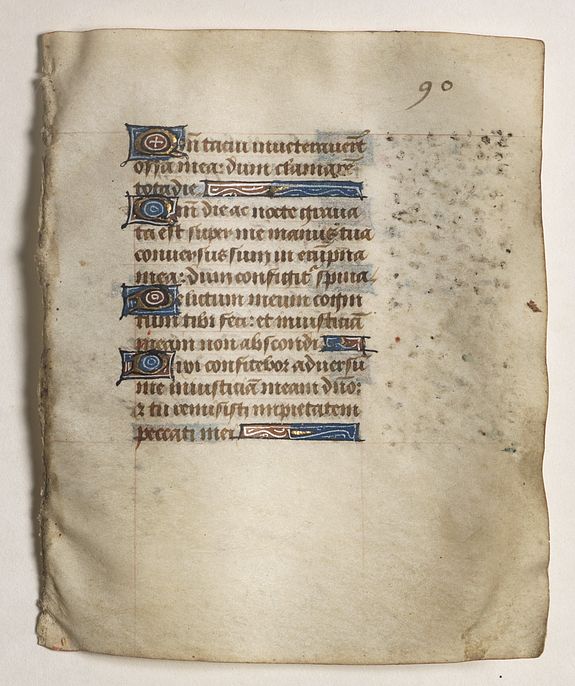 90
Qm̄ tacui inveteraverūt
ossa mea: dum clamarē
tota die
Qm̄ die ac nocte grava
ta est super me manus tua
conversus sum in erūpna
mea: dum configit᷑ spina.
Delictum meum cogni
tum tibi feci: et iniusticiā
meam non abscondi
Dixi confitebor adversū
me iniusticiā meam dño:
⁊ tu remisisti impietatem
peccati mei